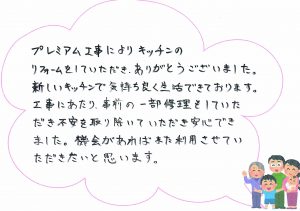 プレミアム工事によりキッチンの
リフォームをしていただき、ありがとうございました。
新しいキッチンで気持ち良く生活できております。
工事にあたり、事前の一部修理をしていた
だき不安を取り除いていただき安心でき
ました。機会があればまた利用させてい
ただきたいと思います。